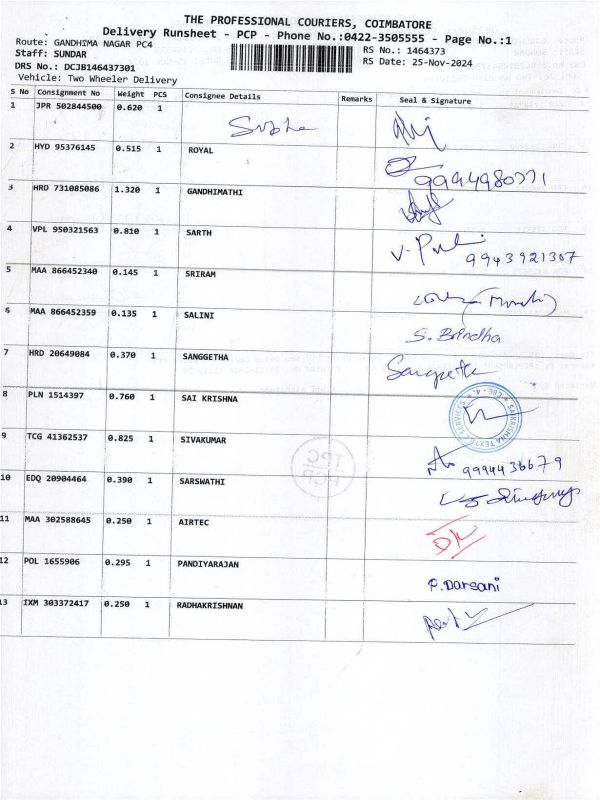 THE PROFESSIONAL COURIERS, COIMBATORE
Delivery Runsheet - PCP - Phone No.:0422-3505555 - Page No.:1
Route: GANDHIMA NAGAR PC4
RS No.: 1464373
Staff: SUNDAR
RS Date: 25-Nov-2024
DRS No.: DCJB146437301
Vehicle: Two Wheeler Delivery
S No Consignment No Weight PCS Consignee Details Remarks Seal & Signature
1 JPR 502844500 0.620 1
2 HYD 95376145 0.515 1 ROYAL
9994980771
3 HRD 731085086 1.320 1 GANDHIMATHI
4 VPL 950321563 0.810 1 SARTH
9943921307
5 MAA 866452340 0.145 1 SRIRAM
6 MAA 866452359 0.135 1 SALINI
S. Brindha
7 HRD 20649084 0.370 1 SANGGETHA
Sangeetha
8 PLN 1514397 0.760 1 SAI KRISHNA
SAI KRISHNA TEXTILE SERVICES * CBE - 4. *
9 TCG 41362537 0.825 1 SIVAKUMAR
9994436679
TPC
PCP
10 EDQ 20904464 0.390 1 SARSWATHI
11 MAA 302588645 0.250 1 AIRTEC
12 POL 1655906 0.295 1 PANDIYARAJAN
P. Darsani
13 IXM 303372417 0.250 1 RADHAKRISHNAN